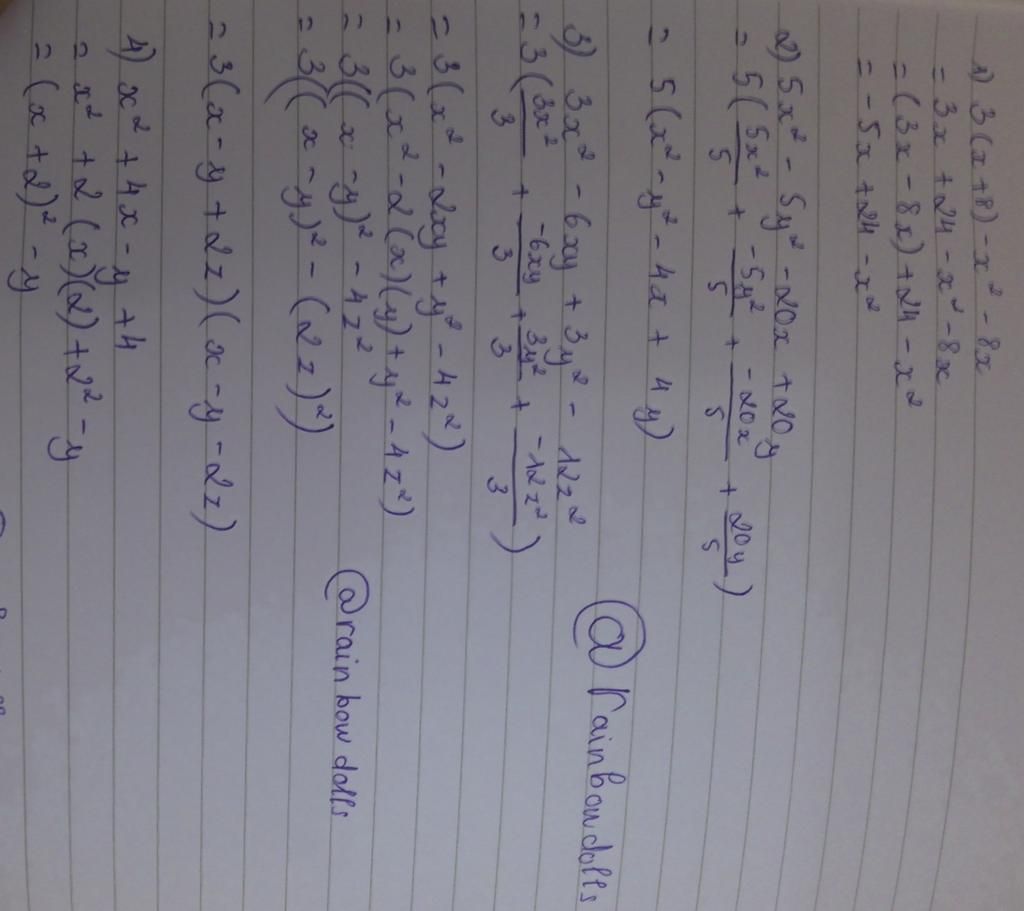 1) 3(x+8) - x² - 8x
= 3x + 24 - x² - 8x
= (3x - 8x) + 24 - x²
= -5x + 24 - x²
2) 5x² - 5y² - 20x + 20y
= 5(5x²/5 + -5y²/5 + -20x/5 + 20y/5)
= 5(x² - y² - 4x + 4y)
3) 3x² - 6xy + 3y² - 12z²
= 3(3x²/3 + -6xy/3 + 3y²/3 + -12z²/3)
= 3(x² - 2xy + y² - 4z²)
= 3(x² - 2(x)(y) + y² - 4z²)
= 3((x - y)² - 4z²
= 3((x - y)² - (2z)²)
= 3(x - y + 2z)(x - y - 2z)
4) x² + 4x - y + 4
= x² + 2(x)(2) + 2² - y
= (x + 2)² - y
@rainbowdolls
@rainbow dolls